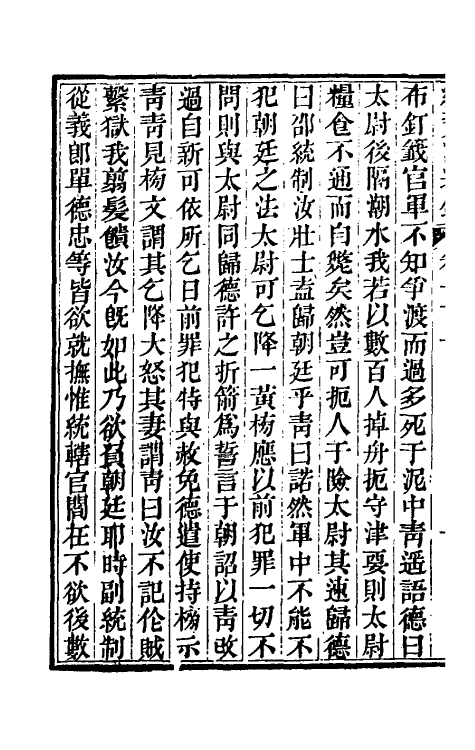 布釘籖官軍不知爭渡而過多死于泥中靑遥語德曰
太尉後隔潮水我若以數百人掉舟扼守津要則太尉
糧食不通而自斃矣然豈可扼人于險太尉其速歸德
曰邵統制汝壯士盍歸朝廷乎靑曰諾然軍中不能不
犯朝廷之法太尉可乞降一黃榜應以前犯罪一切不
問則與太尉同歸德許之折箭爲誓言于朝詔以靑改
過自新可依所乞日前罪犯特與赦免德遣使持榜示
靑靑見榜文謂其乞降大怒其妻謂靑曰汝不記伦賊
繫獄我翦髮饋汝今旣如此乃欲負朝廷耶時副統制
從義郎單德忠等皆欲就撫惟統轄官閻在不欲後數